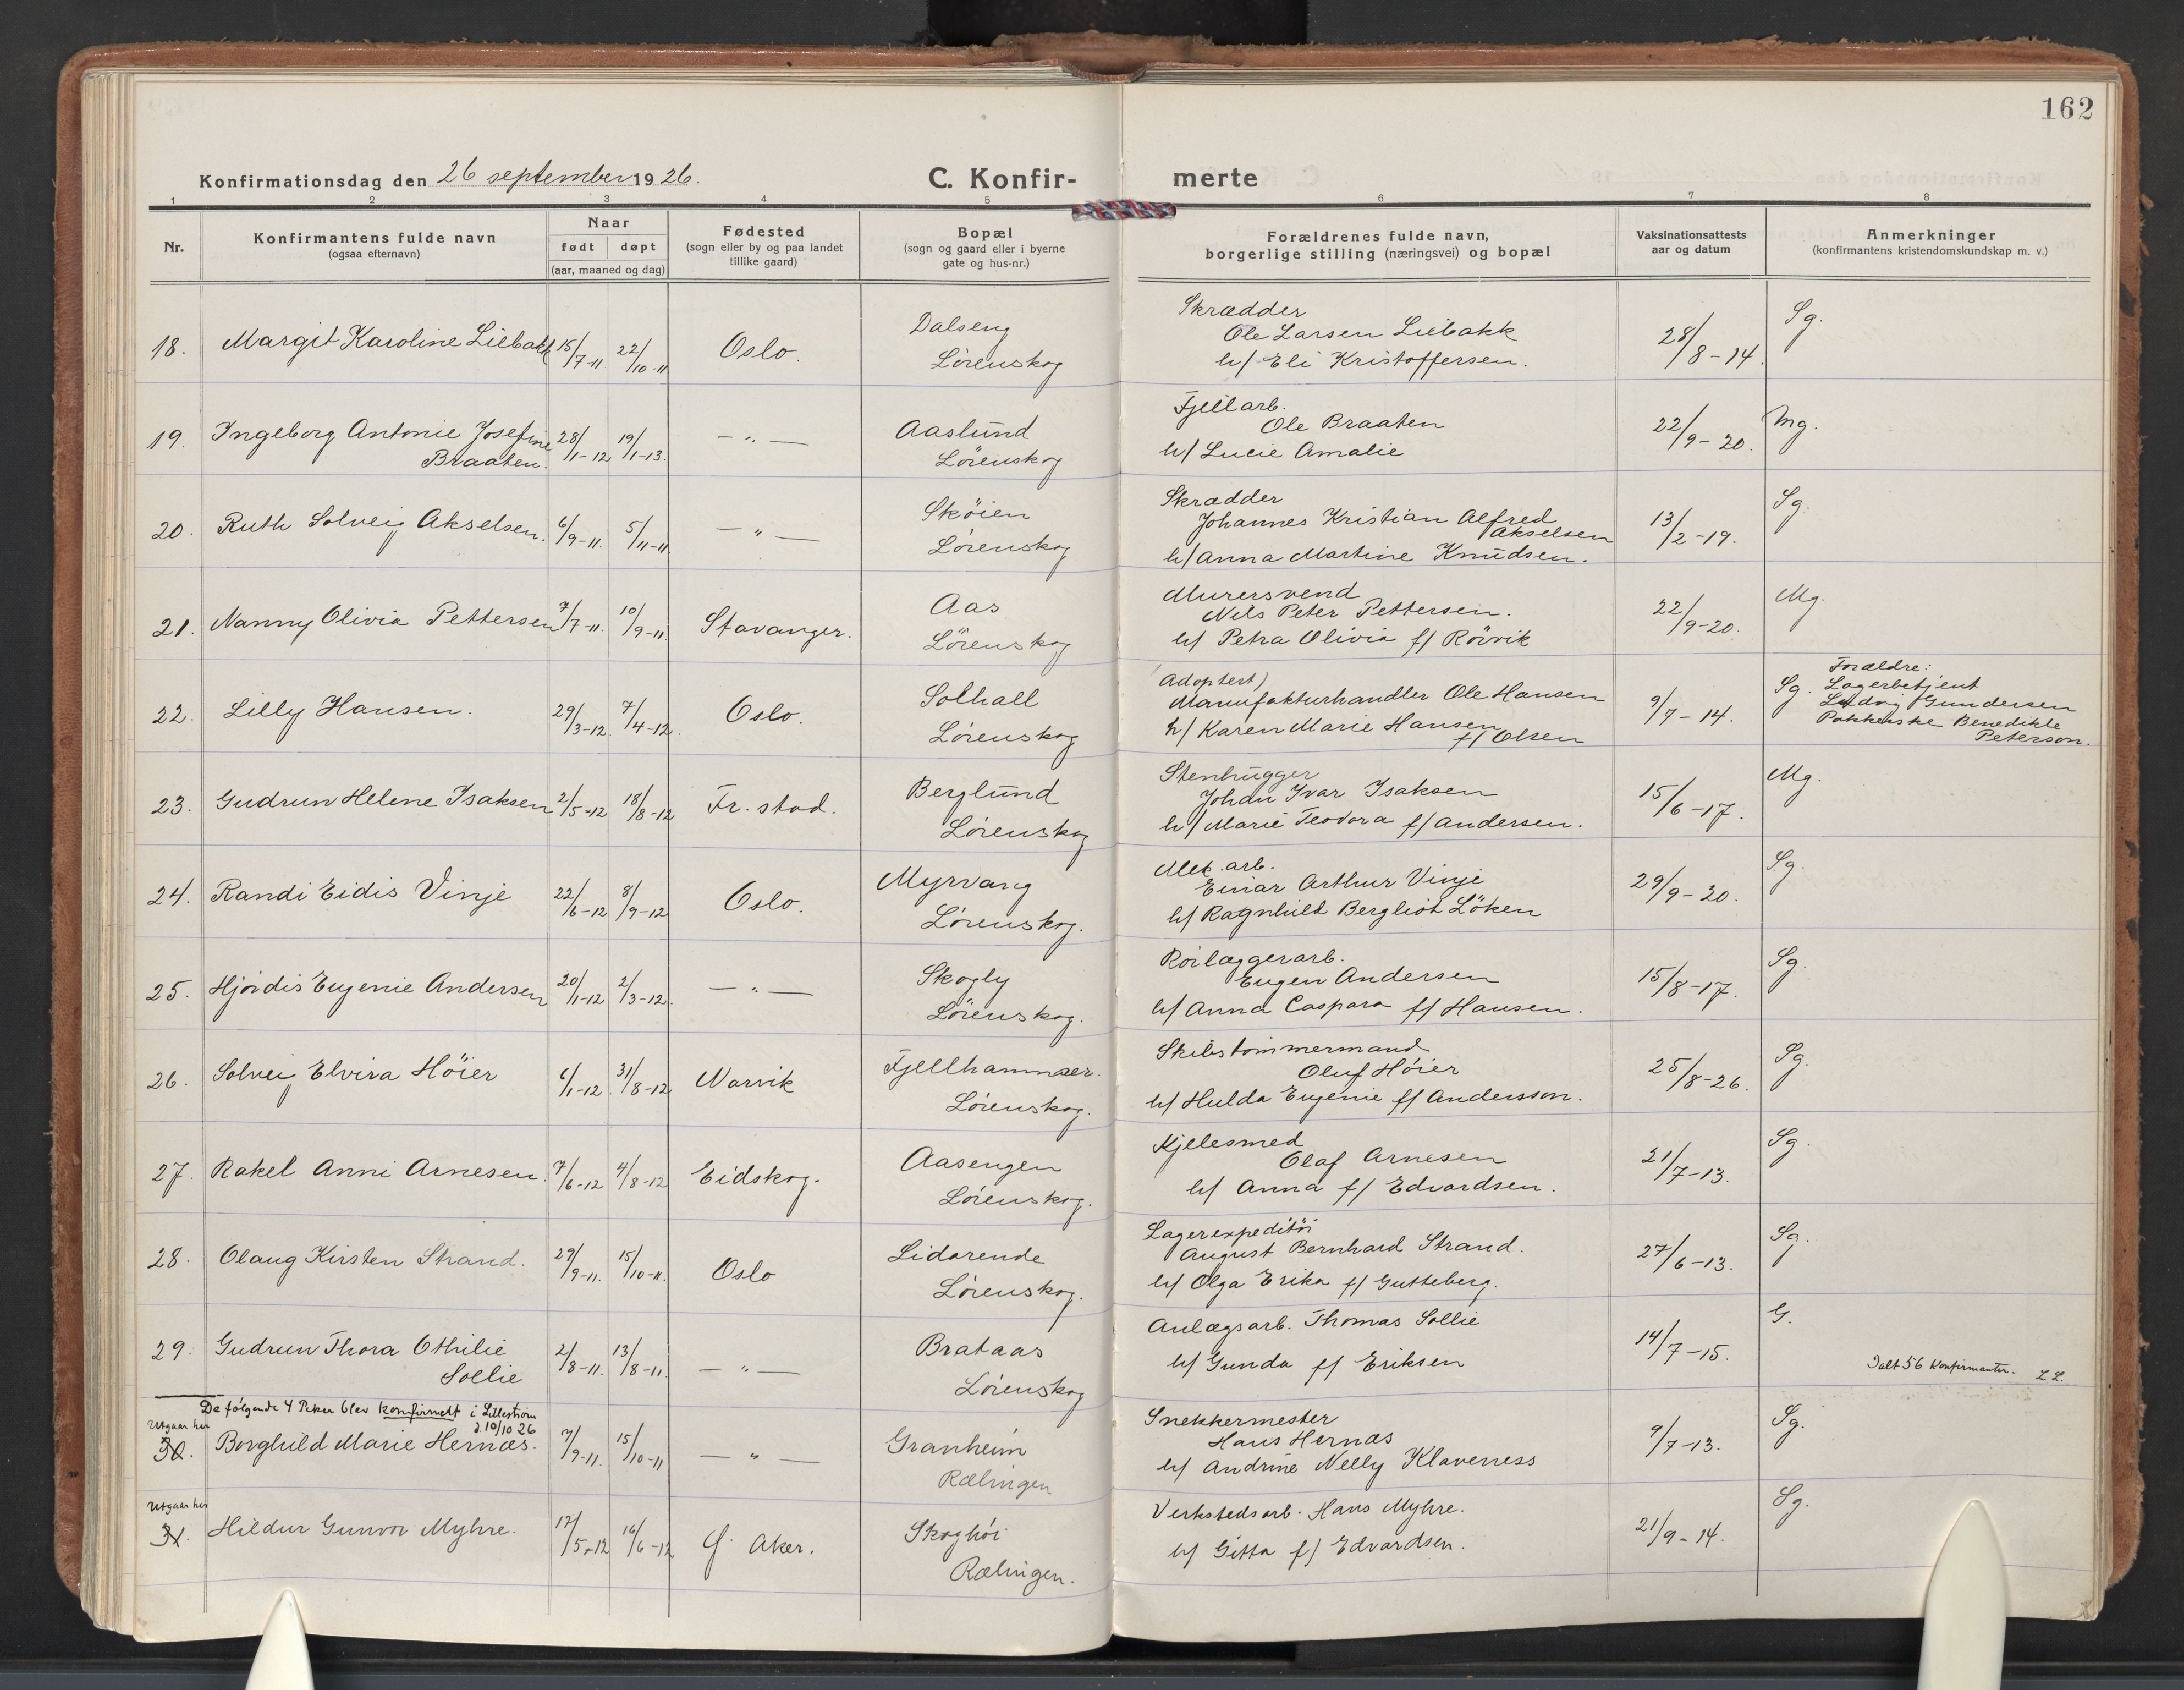 162
Konfirmationsdag den 26 september 1926.
C. Konfir-
merte
1 2 3 4 5 6 7 8
Nr.
Konfirmantens fulde navn
(ogsaa efternavn)
Naar
født døpt
(aar, maaned og dag)
Fødested
(sogn eller by og paa landet
tillike gaard)
Bopæl
(sogn og gaard eller i byerne
gate og hus-nr.)
Forældrenes fulde navn,
borgerlige stilling (næringsvei) og bopæl
Vaksinationsattests
aar og datum
Anmerkninger
(konfirmantens kristendomskundskap m. v.)
18. Margit Karoline Liebakk 15/7-11. 22/10-11 Oslo.
Dalseng
Lørenskog
Skrædder
Ole Larsen Liebakk
h/ Eli Kristoffersen.
28/8-14.
Sg.
19. Ingeborg Antonie Josefine
Braaten.
28/1-12 19/1-13. — " —
Aaslund
Lörenskog
Fjellarb.
Ole Braaten
h/ Lucie Amalie
22/9-20.
Mg.
20. Ruth Solveig Akselsen. 6/9-11. 5/11-11 — " —
Sköien
Lörenskog
Skrædder
Johannes Kristian Alfred
Akselsen
h/ Anna Martine Knudsen.
13/2-19.
Sg.
21. Nanny Olivia Pettersen 7/7-11. 10/9-11 Stavanger.
Aas
Lörenskog
Murersvend
Nils Peter Pettersen.
h/ Petra Olivia f/ Rörvik
22/9-20.
Mg.
22. Lilly Hansen. 29/3-12 7/4-12. Oslo.
Solhall
Lörenskog
(Adoptert)
Manufakturhandler Ole Hansen
h/ Karen Marie Hansen
f/ Olsen
9/7-14.
Sg.
Forældre:
Lagerbetjent
Ludvig Gundersen
Pakkerske Benedikte
Peterson.
23. Gudrun Helene Isaksen 2/5-12 18/8-12 Fr. stad.
Berglund
Lörenskog
Stenhugger
Johan Ivar Isaksen
h/ Marie Teodora f/ Andersen.
15/6-17.
Mg.
24. Randi Eidis Vinje 22/6-12 8/9-12 Oslo.
Myrvang
Lörenskog.
Mek. arb.
Einar Arthur Vinje
h/ Ragnhild Bergliot Löken
29/9-20.
Sg.
25. Hjördis Eugenie Andersen 20/1-12 2/3-12. — " —
Skogly
Lörenskog.
Rörlæggerarb.
Eugen Andersen
h/ Anna Caspara f/ Hansen.
15/8-17.
Sg.
26. Solveig Elvira Höier 6/1-12 31/8-12 Narvik
Fjellhammer.
Lörenskog.
Skibstømmermand
Oluf Höier
h/ Hulda Eugenie f/ Andersson.
25/8-26.
Sg.
27. Rakel Anni Arnesen. 7/6-12 4/8-12 Eidskog.
Aasengen
Lörenskog.
Kjelesmed
Olaf Arnesen
h/ Anna f/ Edvardsen.
21/7-13.
Sg.
28. Olaug Kirsten Strand. 29/9-11. 15/10-11. Oslo
Lidarende
Lörenskog.
Lagerexpeditör
August Bernhard Strand.
h/ Olga Erika f/ Gutteberg.
27/6-13.
Sg.
29. Gudrun Thora Othilie
Sollie
2/8-11. 13/8-11. — " —
Brataas
Lörenskog
Anlægsarb. Thomas Sollie
h/ Gunda f/ Eriksen
14/7-15.
G.
Ialt 56 Konfirmanter.
De følgende 4 Piker blev konfirmert i Lillestrøm
d. 10/10 26
Utgaar her
30. Borghild Marie Hernæs. 7/9-11. 15/10-11 — " —
Granheim
Rælingen
Snekkermester
Hans Hernæs
h/ Andrine Nelly Klaveness
9/7-13.
Sg.
Utgaar her
31. Hildur Gunvor Myhre. 17/5-12 16/6-12 Aker.
Skoghöi
Rælingen.
Verkstedsarb. Hans Myhre.
h/ Gitta f/ Edvardsen.
21/9-14.
Sg.